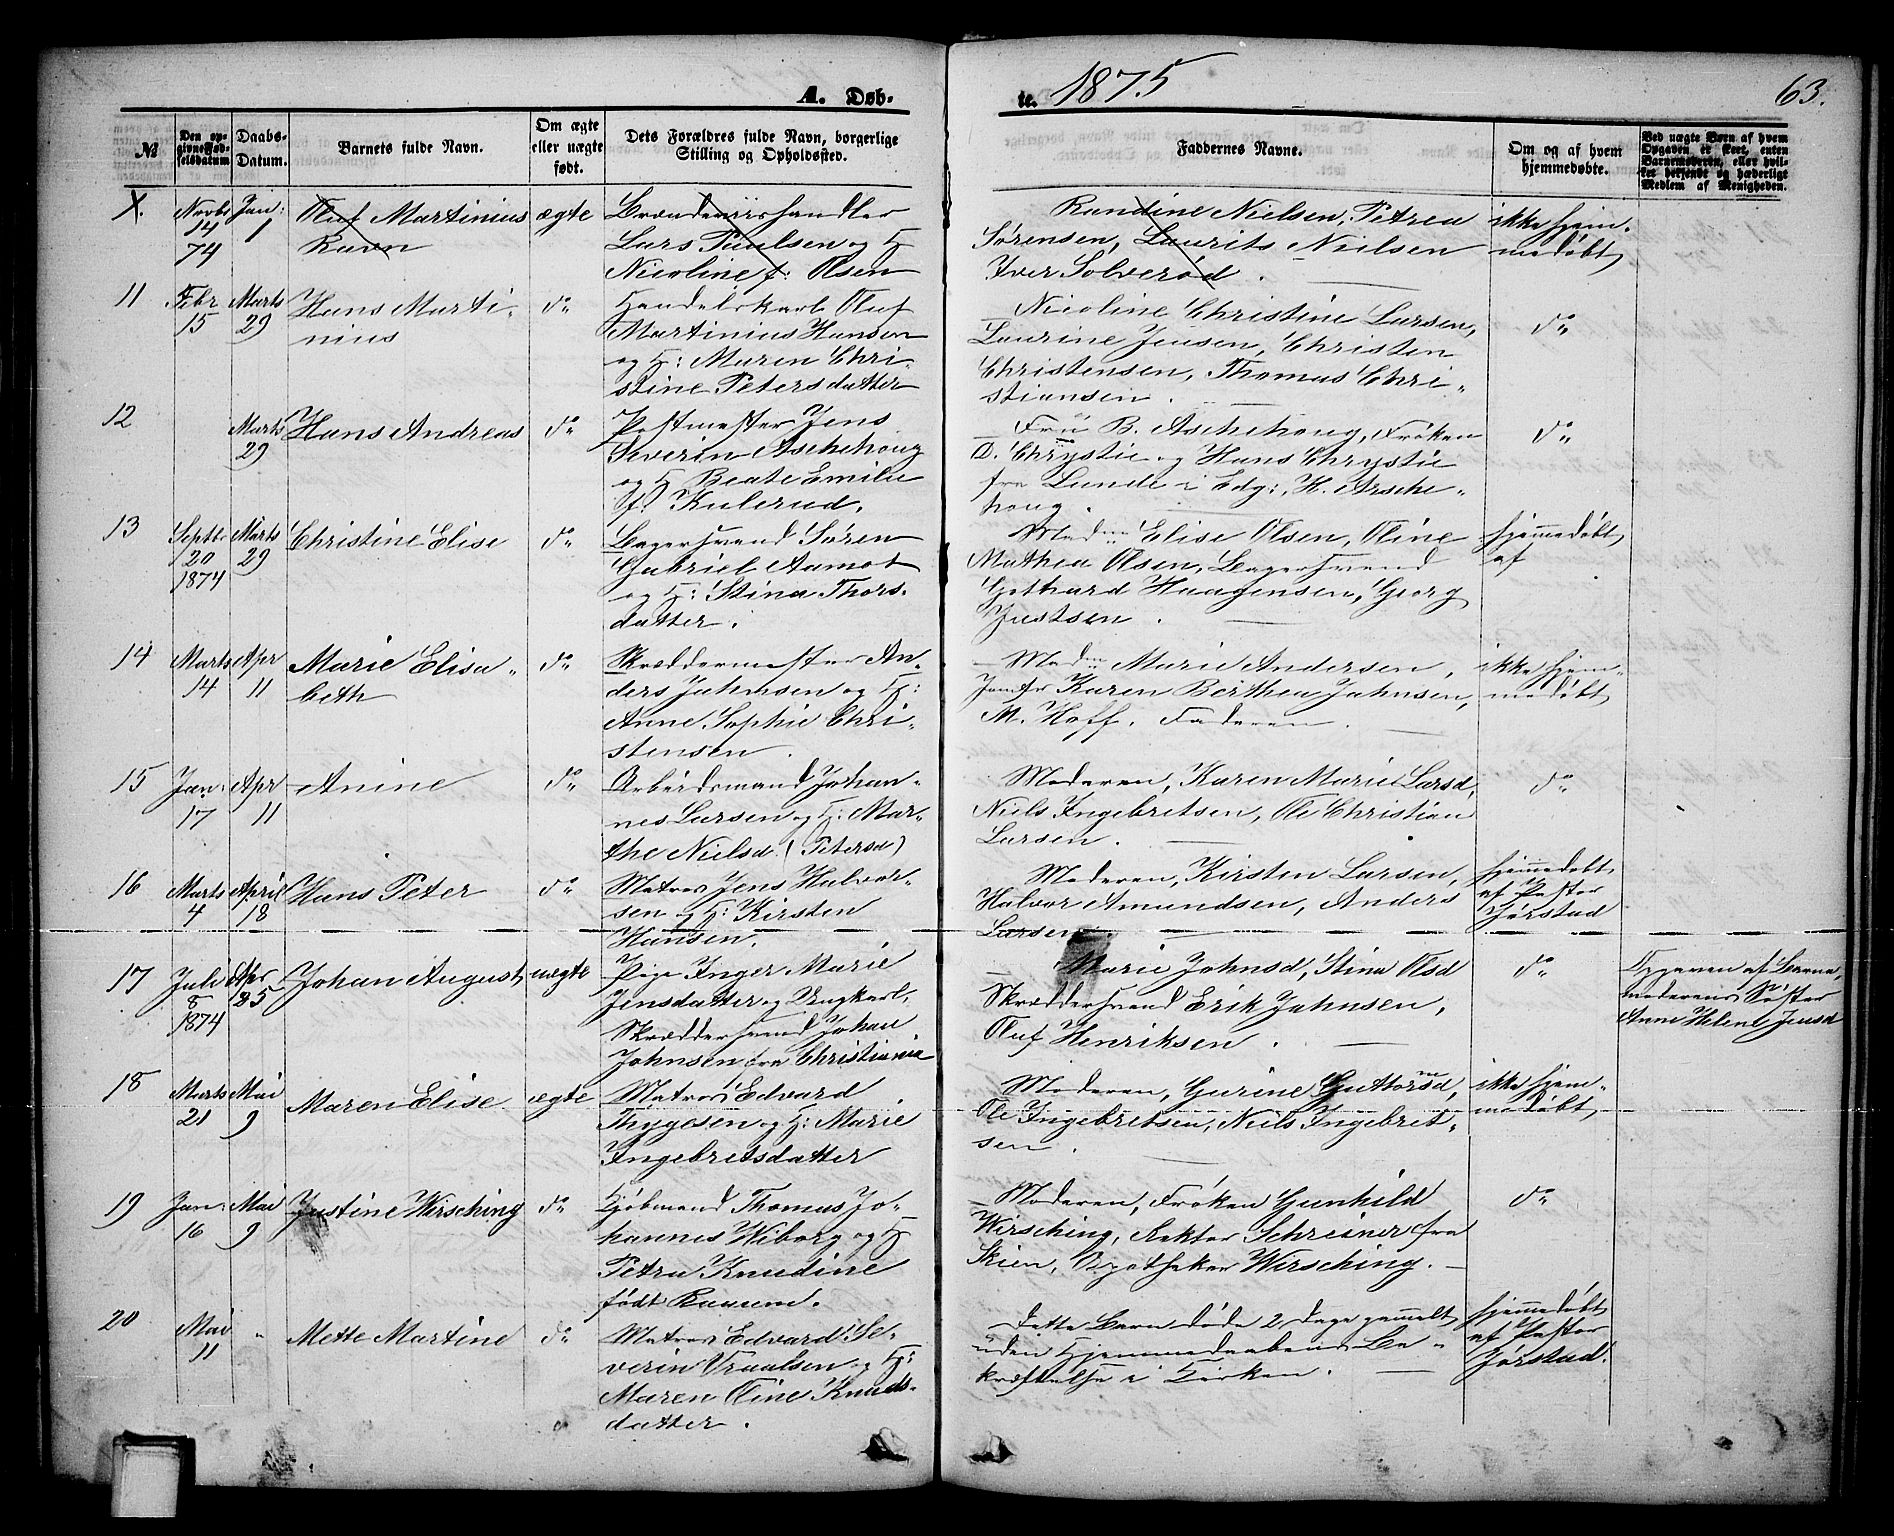 A. Døb-
te. 1875
63.
№
Den opgivne Fødselsdatum
Daabs-Datum.
Barnets fulde Navn.
Om ægte eller uægte født.
Dets Forældres fulde Navn, borgerlige Stilling og Opholdssted.
Faddernes Navne.
Om og af hvem hjemmedøbte.
Ved uægte Børn af hvem Opgaven er skeet, enten Barnemoderen, eller hvilket bekjendt og hæderligt Medlem af Menigheden.
X.
Novbr 14 74
Jan: 1
Oluf Martinius
Ravn
ægte
Brændeviinshandler
Lars Paulsen og H
Nicoline f: Olsen
Randine Nielsen, Petrea
Sørensen, Laurits Nielsen
Iver Solverød.
ikke hjem-
medøbt
11
Febr 15
Marts 29
Hans Marti-
nius
do
Handelskarl Oluf
Martinius Hansen
og H: Maren Chri-
stine Petersdatter
Nicoline Christine Larsen,
Laurine Jensen, Christen
Christensen, Thomas Chri-
stiansen.
do
12
Marts 29
Hans Andreas
do
Postmester Jens
Severin Aschehoug
og H Beate Emilie
f. Kulerud.
Frü B. Aschehoug, Frøken
D. Chrystie og Hans Chrystie
fra Lunde i Edg:, H. Asche-
houg.
do
13
Septbr 20 1874
Marts 29
Christine Elise
do
Bagersvend Søren
Gabriel Aamot
og H: Stina Thors-
datter.
Madm Elise Olsen, Oline
Mathea Olsen, Bagersvend
Gothard Haagensen, Georg
Justsen.
hjemmedøbt
af
14
Marts 14
Apr 11
Marie Elisa-
beth
do
Skræddermester An-
ders Jahnsen og H:
Anne Sophie Chri-
stensen.
Madm Marie Andersen,
Jomfr Karen Berthea Jahnsen,
M. Hoff. Faderen.
ikke hjem-
medøbt
15
Jan: 17
Apr 11
Anine
do
Arbeidsmand Johan-
nes Larsen og H: Mar-
the Nielsd. (Petersd)
Moderen, Karen Marie Larsd,
Niels Ingebretsen, Ole Christian
Larsen.
do
16
Marts 4
April 18
Hans Peter
do
Matros Jens Halvor-
sen og H: Kirsten
Hansen.
Moderen, Kirsten Larsen,
Halvor Amundsen, Anders
Larsen.
hjemmedøbt
af Pastor
Jørstad
17
Juli 8 1874
Apr 25
Johan August
uægte
Pige Inger Marie
Jensdatter og Ungkarl,
Skræddersvend Johan
Johnsen fra Christiania
Marie Johnsd, Stina Olsd
Skræddersvend Erik Jahnsen,
Oluf Henriksen.
do
Opgaven af Barne-
moderens Søster
Anne Helene Jensd
18
Marts 21
Mai 9
Maren Elise
ægte
Matros Edvard
Thygesen og H: Marie
Ingebretsdatter
Moderen, Gurine Guttormsd,
Ole Ingebretsen, Niels Ingebret-
sen.
ikke hjem-
medøbt
19
Jan: 16
Mai 9
Justine Wirsching
do
Kjøbmand Thomas Jo-
hannes Wiborg og H
Petra Knudine
født Baasene.
Moderen, Frøken Gunhild
Wirsching, Rektor Schreiner fra
Skien, Apotheker Wirsching.
do
20
Mai 11
"
Mette Martine
do
Matros Edvard Se-
verin Vraalsen og H:
Maren Oline Knuds-
datter.
Dette Barn døde 2 Dage gammelt
uden Hjemmedaabens Be-
kræftelse i Kirken.
hjemmedøbt
af Pastor
Jørstad.